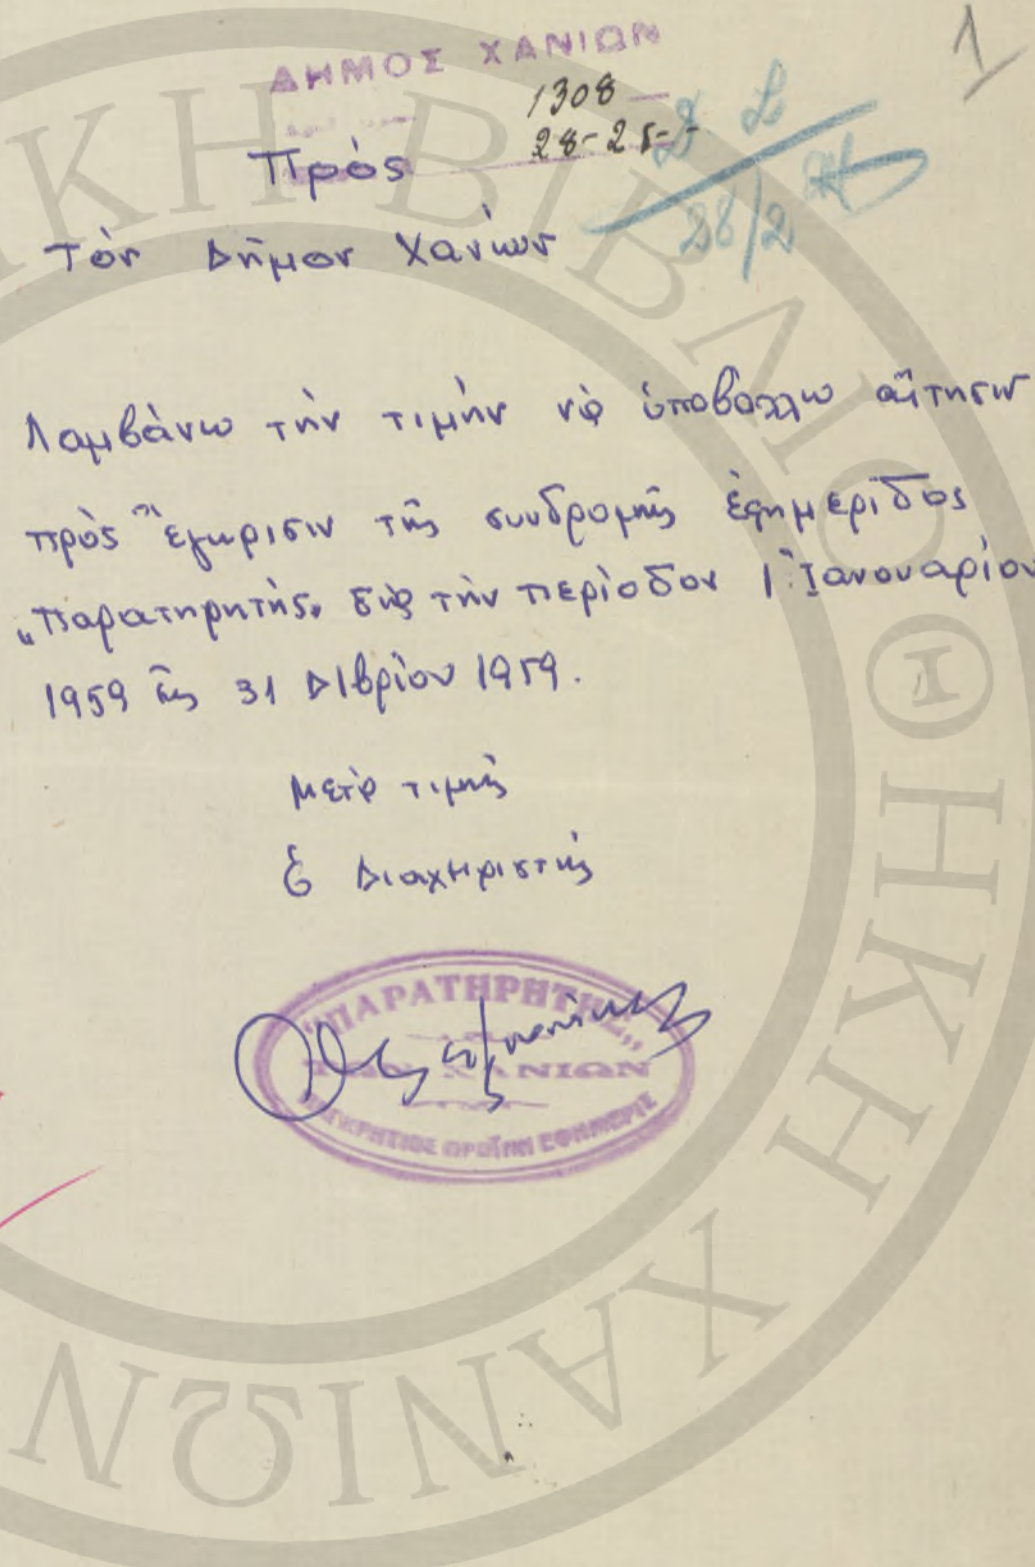 1
ΔΗΜΟΣ ΧΑΝΙΩΝ
1308
28-2
28/2
Πρὸς
τὸν Δῆμον Χανίων
Λαμβάνω τὴν τιμὴν νὰ ὑποβάλλω αἴτησιν
πρὸς ἔγκρισιν τῆς συνδρομῆς ἐφημερίδος
„Παρατηρητής„ διὰ τὴν περίοδον 1 Ἰανουαρίου
1959 ἕως 31 Δ/βρίου 1959.
Μετὰ τιμῆς
Ὁ Διαχειριστὴς
"ΠΑΡΑΤΗΡΗΤΗΣ„
ΤΩΝ ΧΑΝΙΩΝ
ΠΑΓΚΡΗΤΙΟΣ ΠΡΩΪΝΗ ΕΦΗΜΕΡΙΣ
ΒΙΒΛΙΟΘΗΚΗ ΧΑΝΙΩΝ